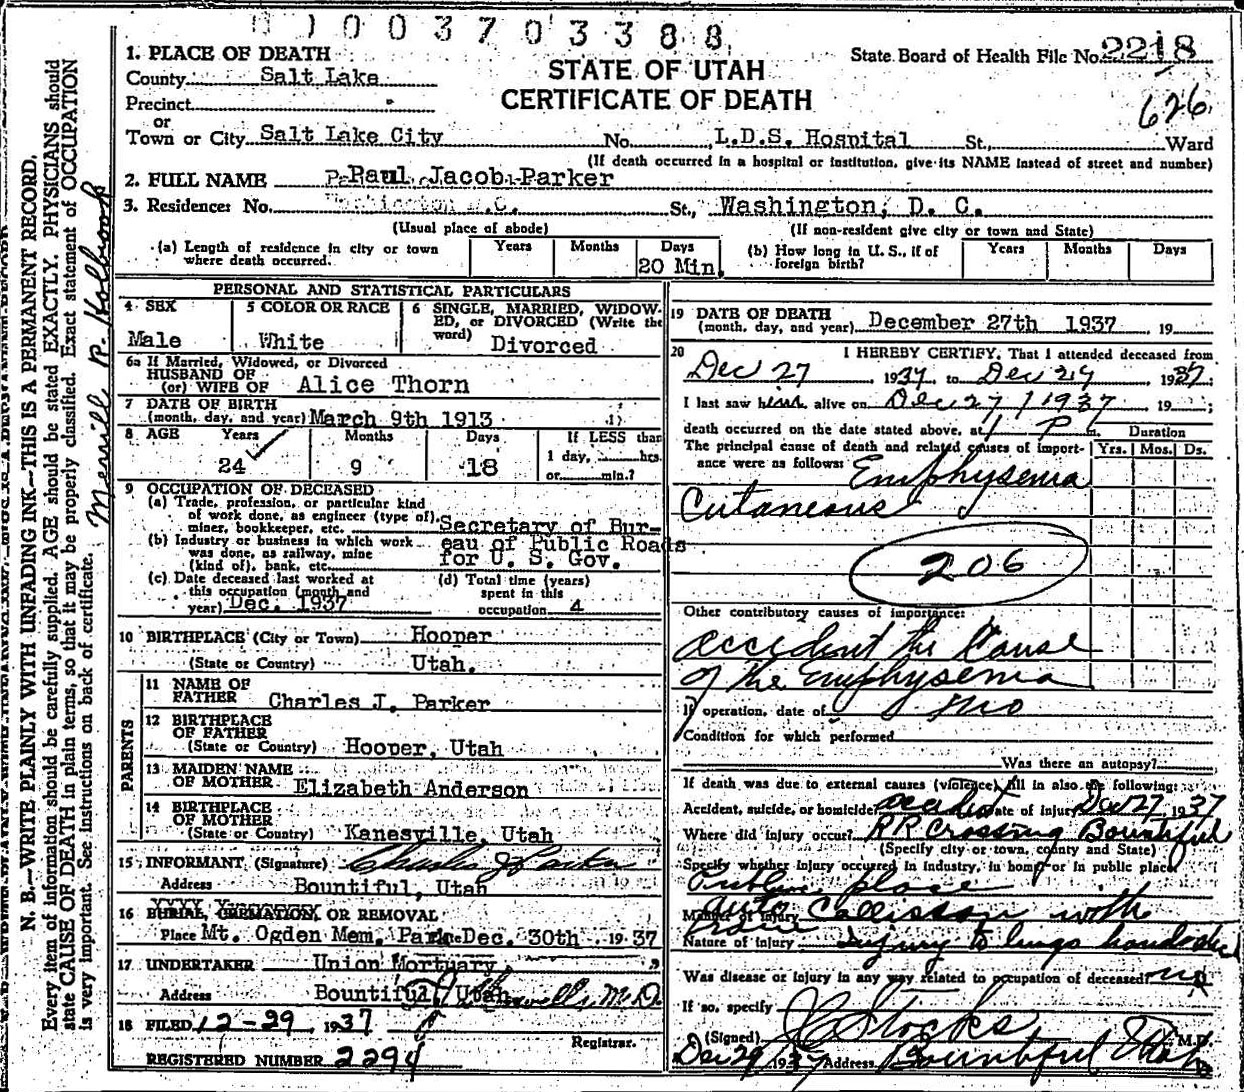 0100370338 8
1. PLACE OF DEATH
State Board of Health File No. 2218
County Salt Lake
STATE OF UTAH
Precinct
CERTIFICATE OF DEATH
626
or
Town or City Salt Lake City No. L.D.S. Hospital St., Ward
(If death occurred in a hospital or institution, give its NAME instead of street and number)
2. FULL NAME Paul Jacob Parker
3. Residence: No. St., Washington, D. C.
(Usual place of abode) (If non-resident give city or town and State)
(a) Length of residence in city or town where death occurred. Years Months Days 20 Min.
(b) How long in U. S., if of foreign birth? Years Months Days
PERSONAL AND STATISTICAL PARTICULARS
4 SEX Male
5 COLOR OR RACE White
6 SINGLE, MARRIED, WIDOWED, or DIVORCED (Write the word) Divorced
6a If Married, Widowed, or Divorced
HUSBAND OF
(or) WIFE OF Alice Thorn
7 DATE OF BIRTH
(month, day, and year) March 9th 1913
8 AGE Years 24 Months 9 Days 18
If LESS than
1 day, hrs.
or min.?
9 OCCUPATION OF DECEASED
(a) Trade, profession, or particular kind
of work done, as engineer (type of),
miner, bookkeeper, etc. Secretary of Bur-
(b) Industry or business in which work eau of Public Roads
was done, as railway, mine for U. S. Gov.
(kind of), bank, etc.
(c) Date deceased last worked at
this occupation (month and
year) Dec. 1937
(d) Total time (years)
spent in this
occupation 4
10 BIRTHPLACE (City or Town) Hooper
(State or Country) Utah.
PARENTS
11 NAME OF
FATHER Charles J. Parker
12 BIRTHPLACE
OF FATHER
(State or Country) Hooper, Utah
13 MAIDEN NAME
OF MOTHER Elizabeth Anderson
14 BIRTHPLACE
OF MOTHER
(State or Country) Kanesville, Utah
15 INFORMANT (Signature) Charles J Parker
Address Bountiful, Utah
16 BURIAL, CREMATION, OR REMOVAL
Place Mt. Ogden Mem. Park Dec. 30th 1937
17 UNDERTAKER Union Mortuary
Address Bountiful, Utah
M.D.
18 FILED 12-29, 1937
Registrar.
REGISTERED NUMBER 2294
19 DATE OF DEATH
(month, day, and year) December 27th 1937 19
20 I HEREBY CERTIFY, That I attended deceased from
Dec 27, 1937, to Dec 27, 1937;
I last saw him alive on Dec 27, 1937 19 ;
death occurred on the date stated above, at 1 P m. Duration
The principal cause of death and related causes of importance were as follows: Yrs. Mos. Ds.
Emphysema
Cutaneous
206
Other contributory causes of importance:
accident the Cause
of the Emphysema
If operation, date of no
Condition for which performed
Was there an autopsy?
If death was due to external causes (violence) fill in also the following:
Accident, suicide, or homicide accident Date of injury Dec 27, 1937
Where did injury occur? RR Crossing Bountiful
(Specify city or town, county and State)
Specify whether injury occurred in industry, in home, or in public place
Public place
Manner of injury auto Collission with
train
Nature of injury Injury to lungs
Was disease or injury in any way related to occupation of deceased? no
If so, specify
(Signed) Stocks M.D.
Dec 29, 1937 Address Bountiful Utah
N. B.—WRITE PLAINLY WITH UNFADING INK—THIS IS A PERMANENT RECORD.
Every item of information should be carefully supplied. AGE should be stated EXACTLY. PHYSICIANS should
state CAUSE OF DEATH in plain terms, so that it may be properly classified. Exact statement of OCCUPATION
is very important. See instructions on back of certificate.
Merrill R. Holbrook